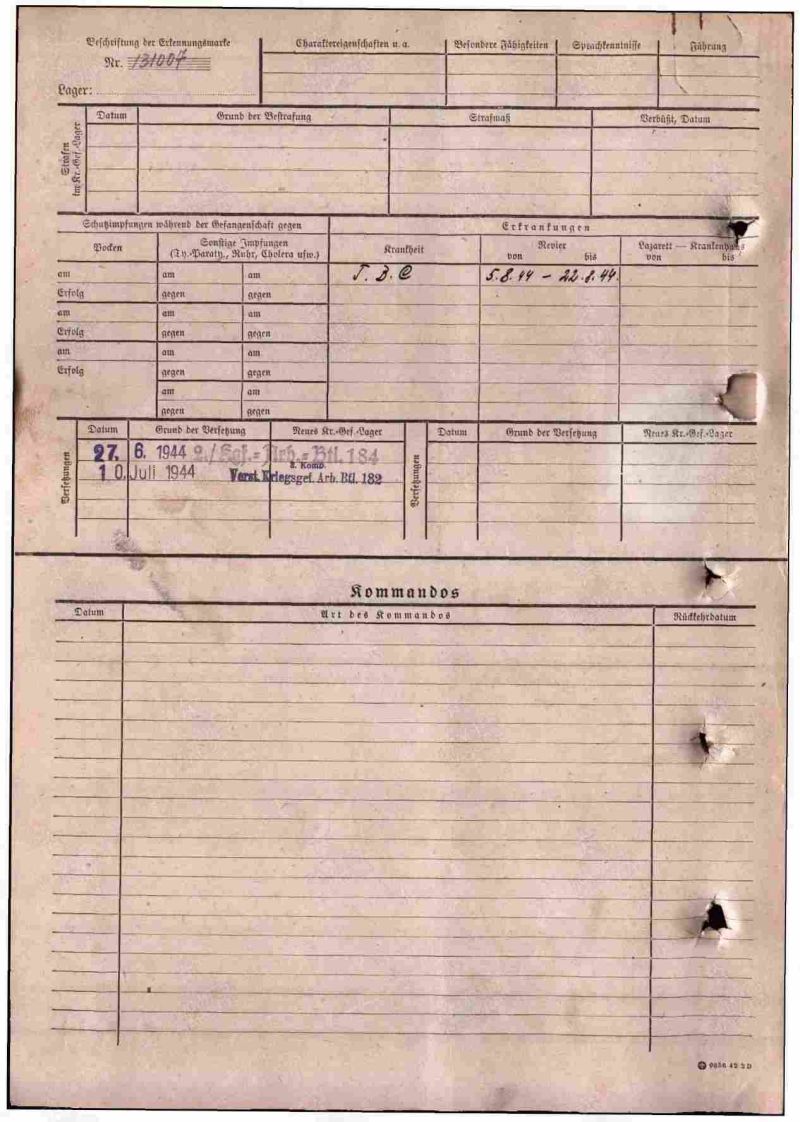 Beschriftung der Erkennungsmarke
Nr. 131007
Lager:
Charaktereigenschaften u. a.
Besondere Fähigkeiten
Sprachkenntnisse
Führung
Strafen im Kr.-Gef.-Lager
Datum
Grund der Bestrafung
Strafmaß
Verbüßt, Datum
Schutzimpfungen während der Gefangenschaft gegen
Erkrankungen
Pocken
Sonstige Impfungen
(Ty.-Paraty., Ruhr, Cholera usw.)
Krankheit
Revier
von bis
Lazarett — Krankenhaus
von bis
am am am T. B. C 5.8.44 – 22.8.44.
Erfolg gegen gegen
am am am
Erfolg gegen gegen
am am am
Erfolg gegen gegen
am am
gegen gegen
Versetzungen
Datum Grund der Versetzung Neues Kr.-Gef.-Lager
27. 6. 1944 2./ Kgf.-Arb.-Btl. 184
10. Juli 1944 Verst. Kriegsgef. Arb. Btl. 182
3. Komp.
Versetzungen
Datum Grund der Versetzung Neues Kr.-Gef.-Lager
Kommandos
Datum Art des Kommandos Rückkehrdatum
42 2 D